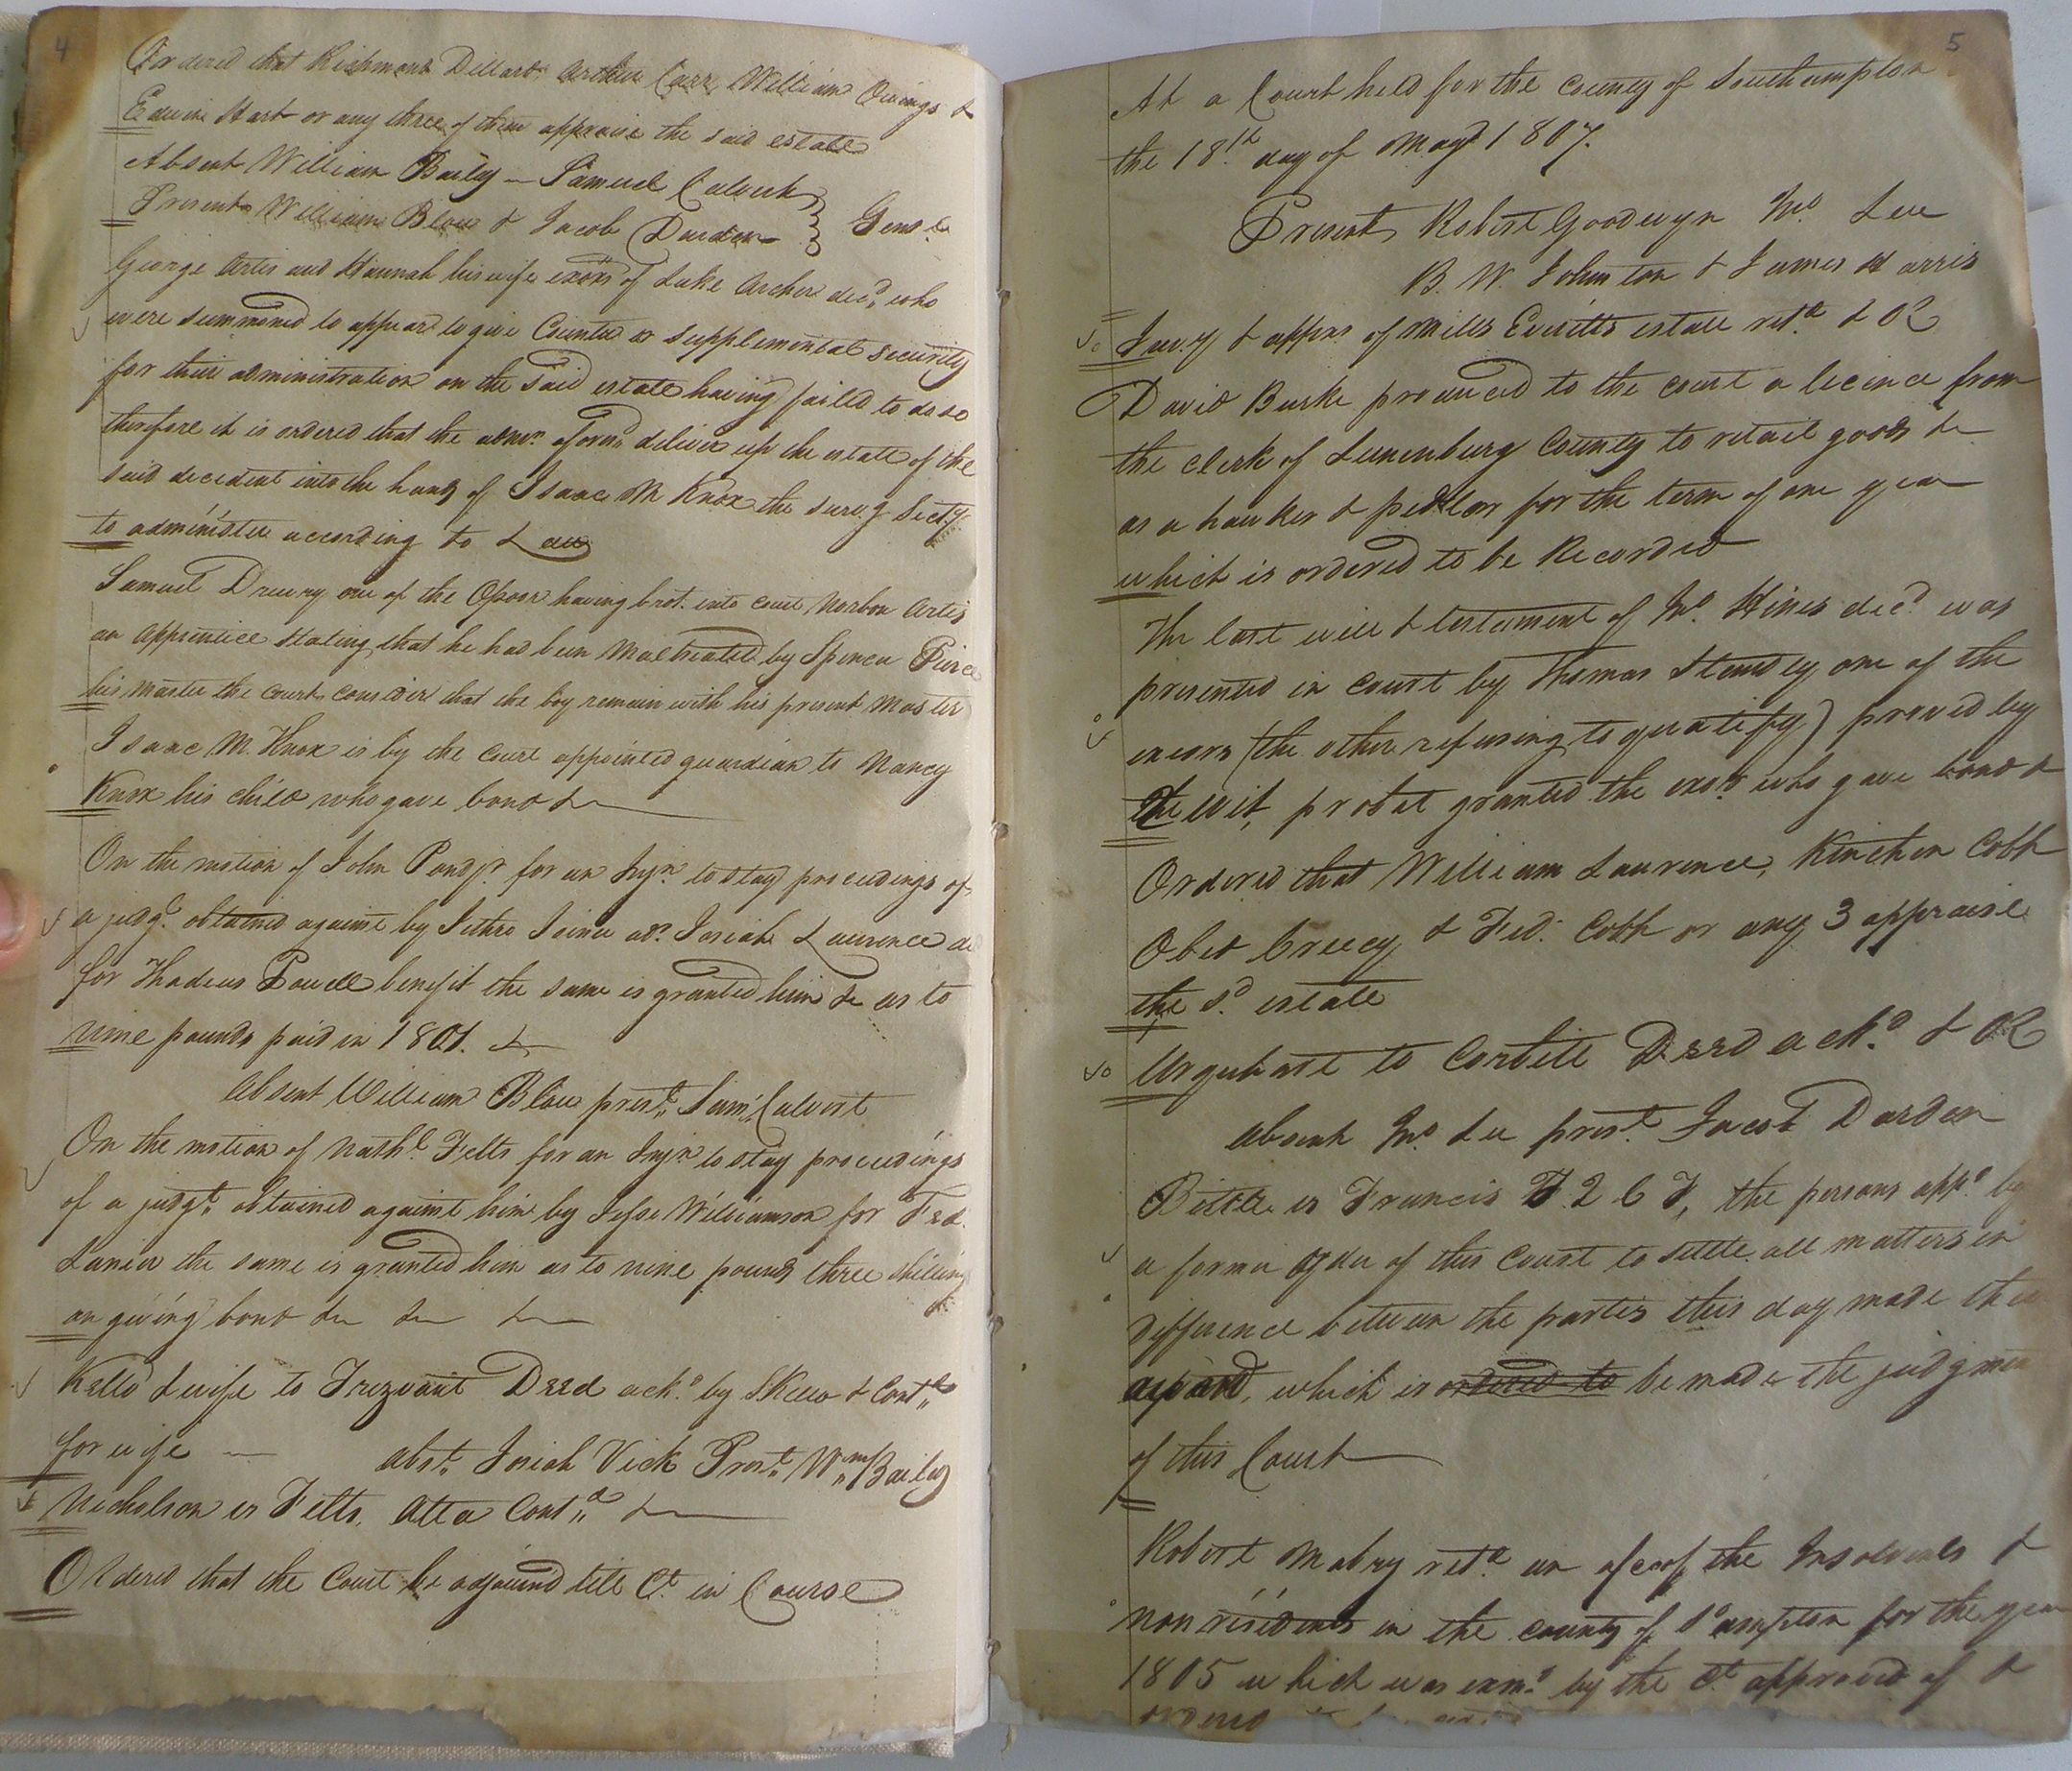 4
Ordered that Richmond Dillard Arthur Carr William Owings &
Edwin Hart or any three of them appraise the said estate
Absent William Bailey — Samuel Calvert
Present William Blow & Jacob Darden — Gent.
George Artis and Hannah his wife exors of Luke Archer decd. who
were summoned to appear to give Counter or supplemental security
for their administration on the said estate having failed to do so
therefore it is ordered that the admr. aforesd. deliver up the estate of the
said decedent into the hands of Isaac M Knox the surv.g Sect.y
to administer according to Law
Samuel Drewry one of the Opoor having brot. into court Norbon Artis
an apprentice stating that he had been maltreated by Spencer Peirce
his master the Court consider that the boy remain with his present Master
Isaac M. Knox is by the Court appointed guardian to Nancy
Knox his child who gave bond &c
On the motion of John Pond jr. for an Injn. to stay proceedings of
a judgt. obtained against by Jethro Joiner ad. Josiah Laurence
for Thadeus Powell benefit the same is granted him &c as to
nine pounds paid in 1801. &c
Absent William Blow prest. Sam. Calvert
On the motion of Nathl. Felts for an Injn. to stay proceedings
of a judgt. obtained against him by Jesse Williamson for Fed.
Lanier the same is granted him as to nine pounds three shilling
on giving bond &c &c &c
Kello & wife to Trezvant Deed ackd. by S Kello & Contd.
for wife — abst. Josiah Vick Prest. Wm. Bailey
Nicholson vs Felts. Atta Contd. &c
Ordered that the Court be adjournd till Ct. in Course
5
At a Court held for the County of Southampton
the 18th. day of May 1807.
Present Robert Goodwyn Jno Lee
B. W. Johnston & James Harris
Inv.y & appnt of Mills Everitts estate retd. & OR
David Burke produced to the court a licence from
the clerk of Lunenburg County to retail goods &c
as a hawker & pedlar for the term of one year
which is ordered to be Recorded
The last will & testament of Jno. Hines decd. was
presented in court by Thomas Standley one of the
excors (the other refusing to qualify) proved by
the wit, probat granted the exor. who gave bond &
Ordered that William Laurence, Kinchen Cobb
Obed Creecy & Fed: Cobb or any 3 appraise
the sd. estate
Urquhart to Corbitt Deed ackd. & OR
Absent Jno Lee prest. Jacob Darden
Bittle vs Francis the persons appd. by
a former order of this Court to settle all matters in
difference between the parties this day made their
award, which is ordered to be made the judgment
of this Court
Robert Mabry retd. an acco. of the Insolvents &
non residents in the county of So ampton for the year
1805 which was exmd. by the Ct. approved of &
ordered